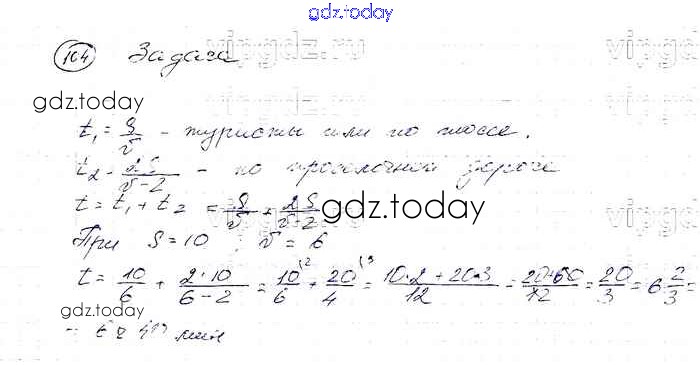 gdz.today
164 Задача
vipgdz.ru
gdz.today
t₁ = S/v - туристы шли по шоссе.
t₂ = 2S/(v-2) - по проселочной дороге
t = t₁ + t₂ = S/v + 2S/(v-2)
gdz.today
При S = 10 ; v = 6
t = 10/6 + (2·10)/(6-2) = 10/6 + 20/4 = (10·2 + 20·3)/12 = (20+60)/12 = 20/3 = 6 2/3 =
gdz.today
= 6 ч 40 мин